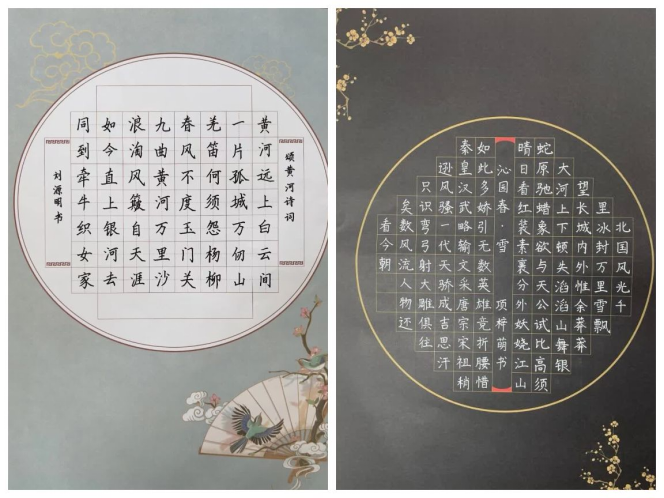 颂黄河诗词
黄河远上白云间
一片孤城万仞山
羌笛何须怨杨柳
春风不度玉门关
九曲黄河万里沙
浪淘风簸自天涯
如今直上银河去
同到牵牛织女家
刘源明书
北国风光千
里冰封万里雪飘
望长城内外惟余莽莽
大河上下顿失滔滔山舞银
蛇原驰蜡象欲与天公试比高须
晴日看红装素裹分外妖娆江山
沁国春·雪
项梓萌书
如此多娇引无数英雄竞折腰惜
秦皇汉武略输文采唐宗宋祖稍
逊风骚一代天骄成吉思汗
只识弯弓射大雕俱往
矣数风流人物还
看今朝